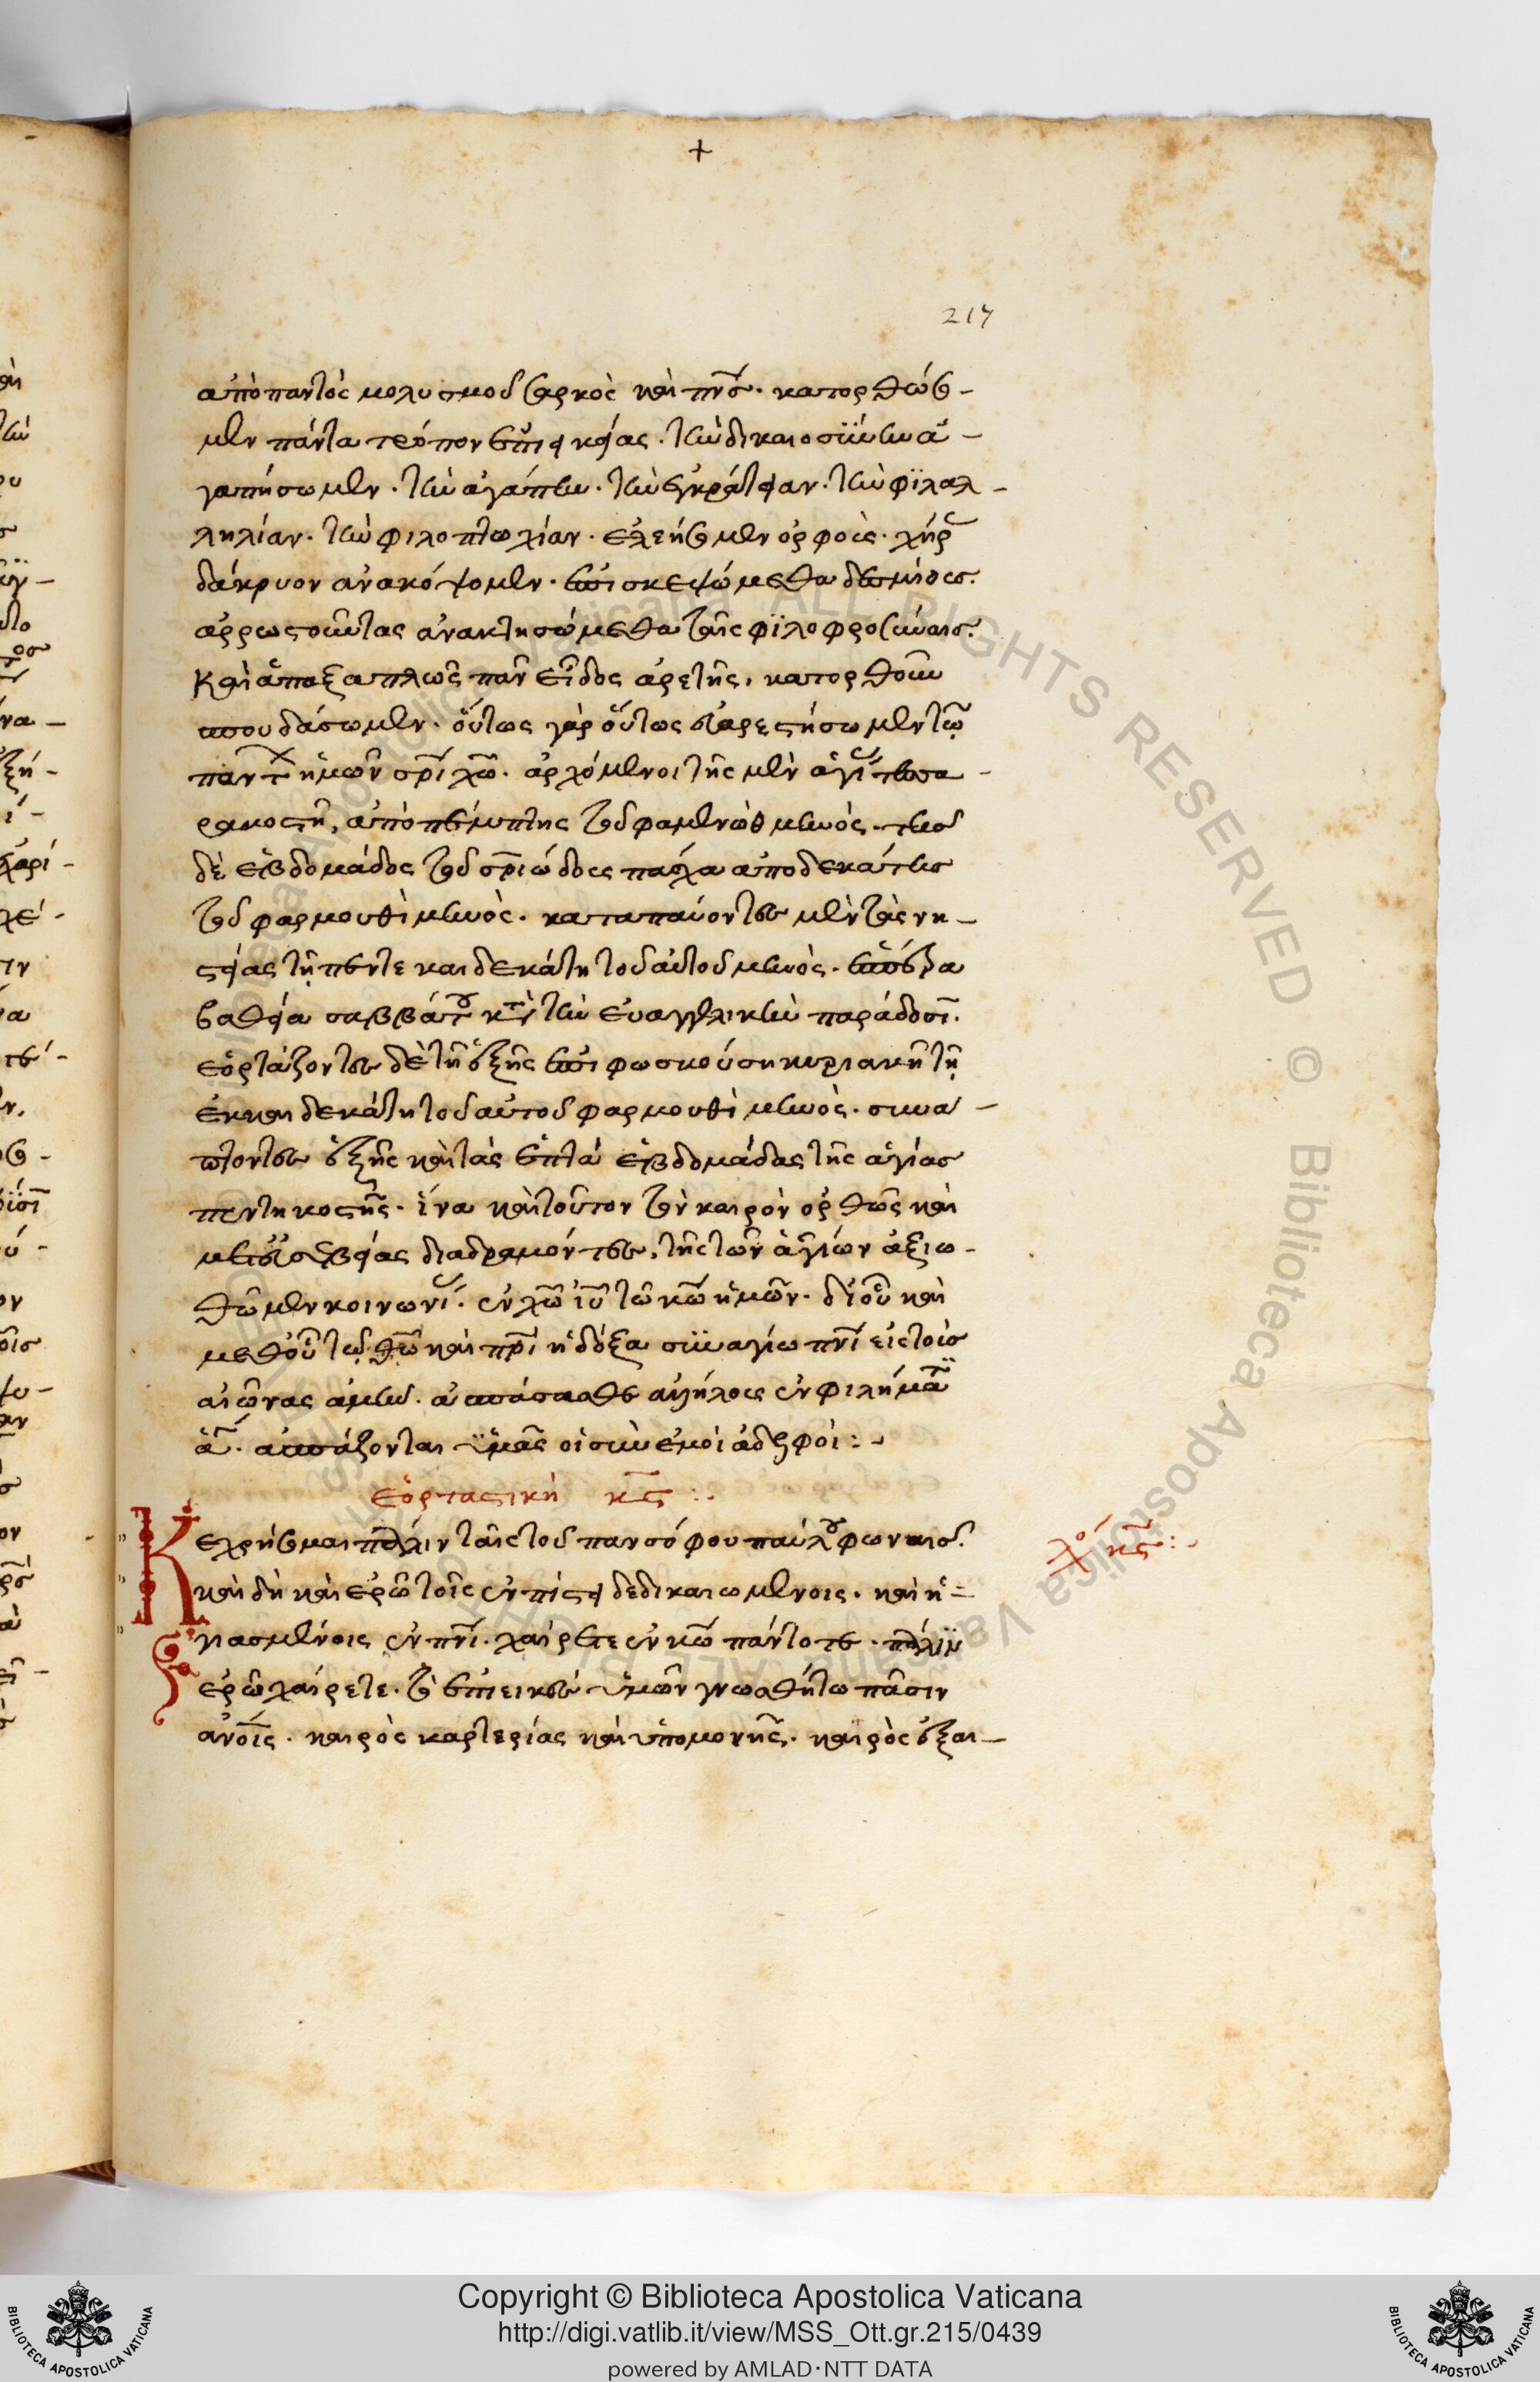 +
217
ἀπὸ παντὸς μολυσμοῦ σαρκὸς καὶ πνς. κατορθώσω-
μεν πάντα τρόπον ἐπιεικείας. τὴν δικαιοσύνην ἀ-
γαπήσωμεν. τὴν ἀγάπην. τὴν ἐγκράτειαν. τὴν φιλαλ-
ληλίαν. τὴν φιλοπτωχίαν. ἐλεήσωμεν ὀρφοὺς. χήρας
δάκρυον ἀνακόψομεν. ἐπισκεψώμεθα δεσμίους.
ἀρρωστοῦντας ἀνακτησώμεθα ταῖς φιλοφροσύναις.
Καὶ ἁπαξαπλῶς πᾶν εἶδος ἀρετῆς, κατορθοῦν
σπουδάσωμεν. οὕτως γὰρ οὕτως εὐαρεστήσωμεν τῷ
πάντων ἡμῶν σρι χῶ. ἀρχόμενοι τῆς μὲν ἁγίας τεσσα-
ρακοστῆς, ἀπὸ πέμπτης τοῦ φαμενὼθ μηνὸς. τῆς
δὲ ἑβδομάδος τοῦ σριώδους πάσχα ἀπὸ δεκάτης
τοῦ φαρμουθὶ μηνὸς. καταπαύοντες μὲν τὰς νη-
στείας τῇ πέντε καὶ δεκάτῃ τοῦ αὐτοῦ μηνὸς. ἑσπέρα
βαθεία σαββάτου κατὰ τὴν εὐαγγελικὴν παράδοσιν.
ἑορτάζοντες δὲ τῇ ἑξῆς ἐπιφωσκούσῃ κυριακῇ τῇ
ἑκκαιδεκάτῃ τοῦ αὐτοῦ φαρμουθὶ μηνὸς. συνά-
πτοντες ἑξῆς καὶ τὰς ἑπτὰ ἑβδομάδας τῆς ἁγίας
πεντηκοστῆς. ἵνα καὶ τοῦτον τὸν καιρὸν ὀρθῶς καὶ
μετ' εὐσεβείας διαδραμόντες, τῆς τῶν ἁγίων ἀξιω-
θῶμεν κοινωνίας. ἐν χῶ ἰῦ τῶ κῶ ἡμῶν. δι' οὗ καὶ
μεθ' οὗ τῷ θῶ καὶ πρι ἡ δόξα σὺν ἁγίω πνι εἰς τοὺς
αἰῶνας ἀμήν. ἀσπάσασθε ἀλλήλους ἐν φιλήματι
ἁγίω. ἀσπάζονται ὑμᾶς οἱ σὺν ἐμοὶ ἀδελφοί:-
ἑορταστικὴ κς:.
Κεχρήσομαι πάλιν ταῖς τοῦ πανσόφου παύλου φωναῖς.
λό κς:-
καὶ δὴ καὶ ἐρῶ τοῖς ἐν πίστει δεδικαιωμένοις. καὶ ἡ-
γιασμένοις ἐν πνι. χαίρετε ἐν κῶ πάντοτε. πάλιν
ἐρῶ χαίρετε. τὸ ἐπιεικὲς ὑμῶν γνωσθήτω πᾶσιν
ἀνοις. καιρὸς καρτερίας καὶ ὑπομονῆς. καιρὸς ἐξαι-
Copyright © Biblioteca Apostolica Vaticana
http://digi.vatlib.it/view/MSS_Ott.gr.215/0439
powered by AMLAD·NTT DATA